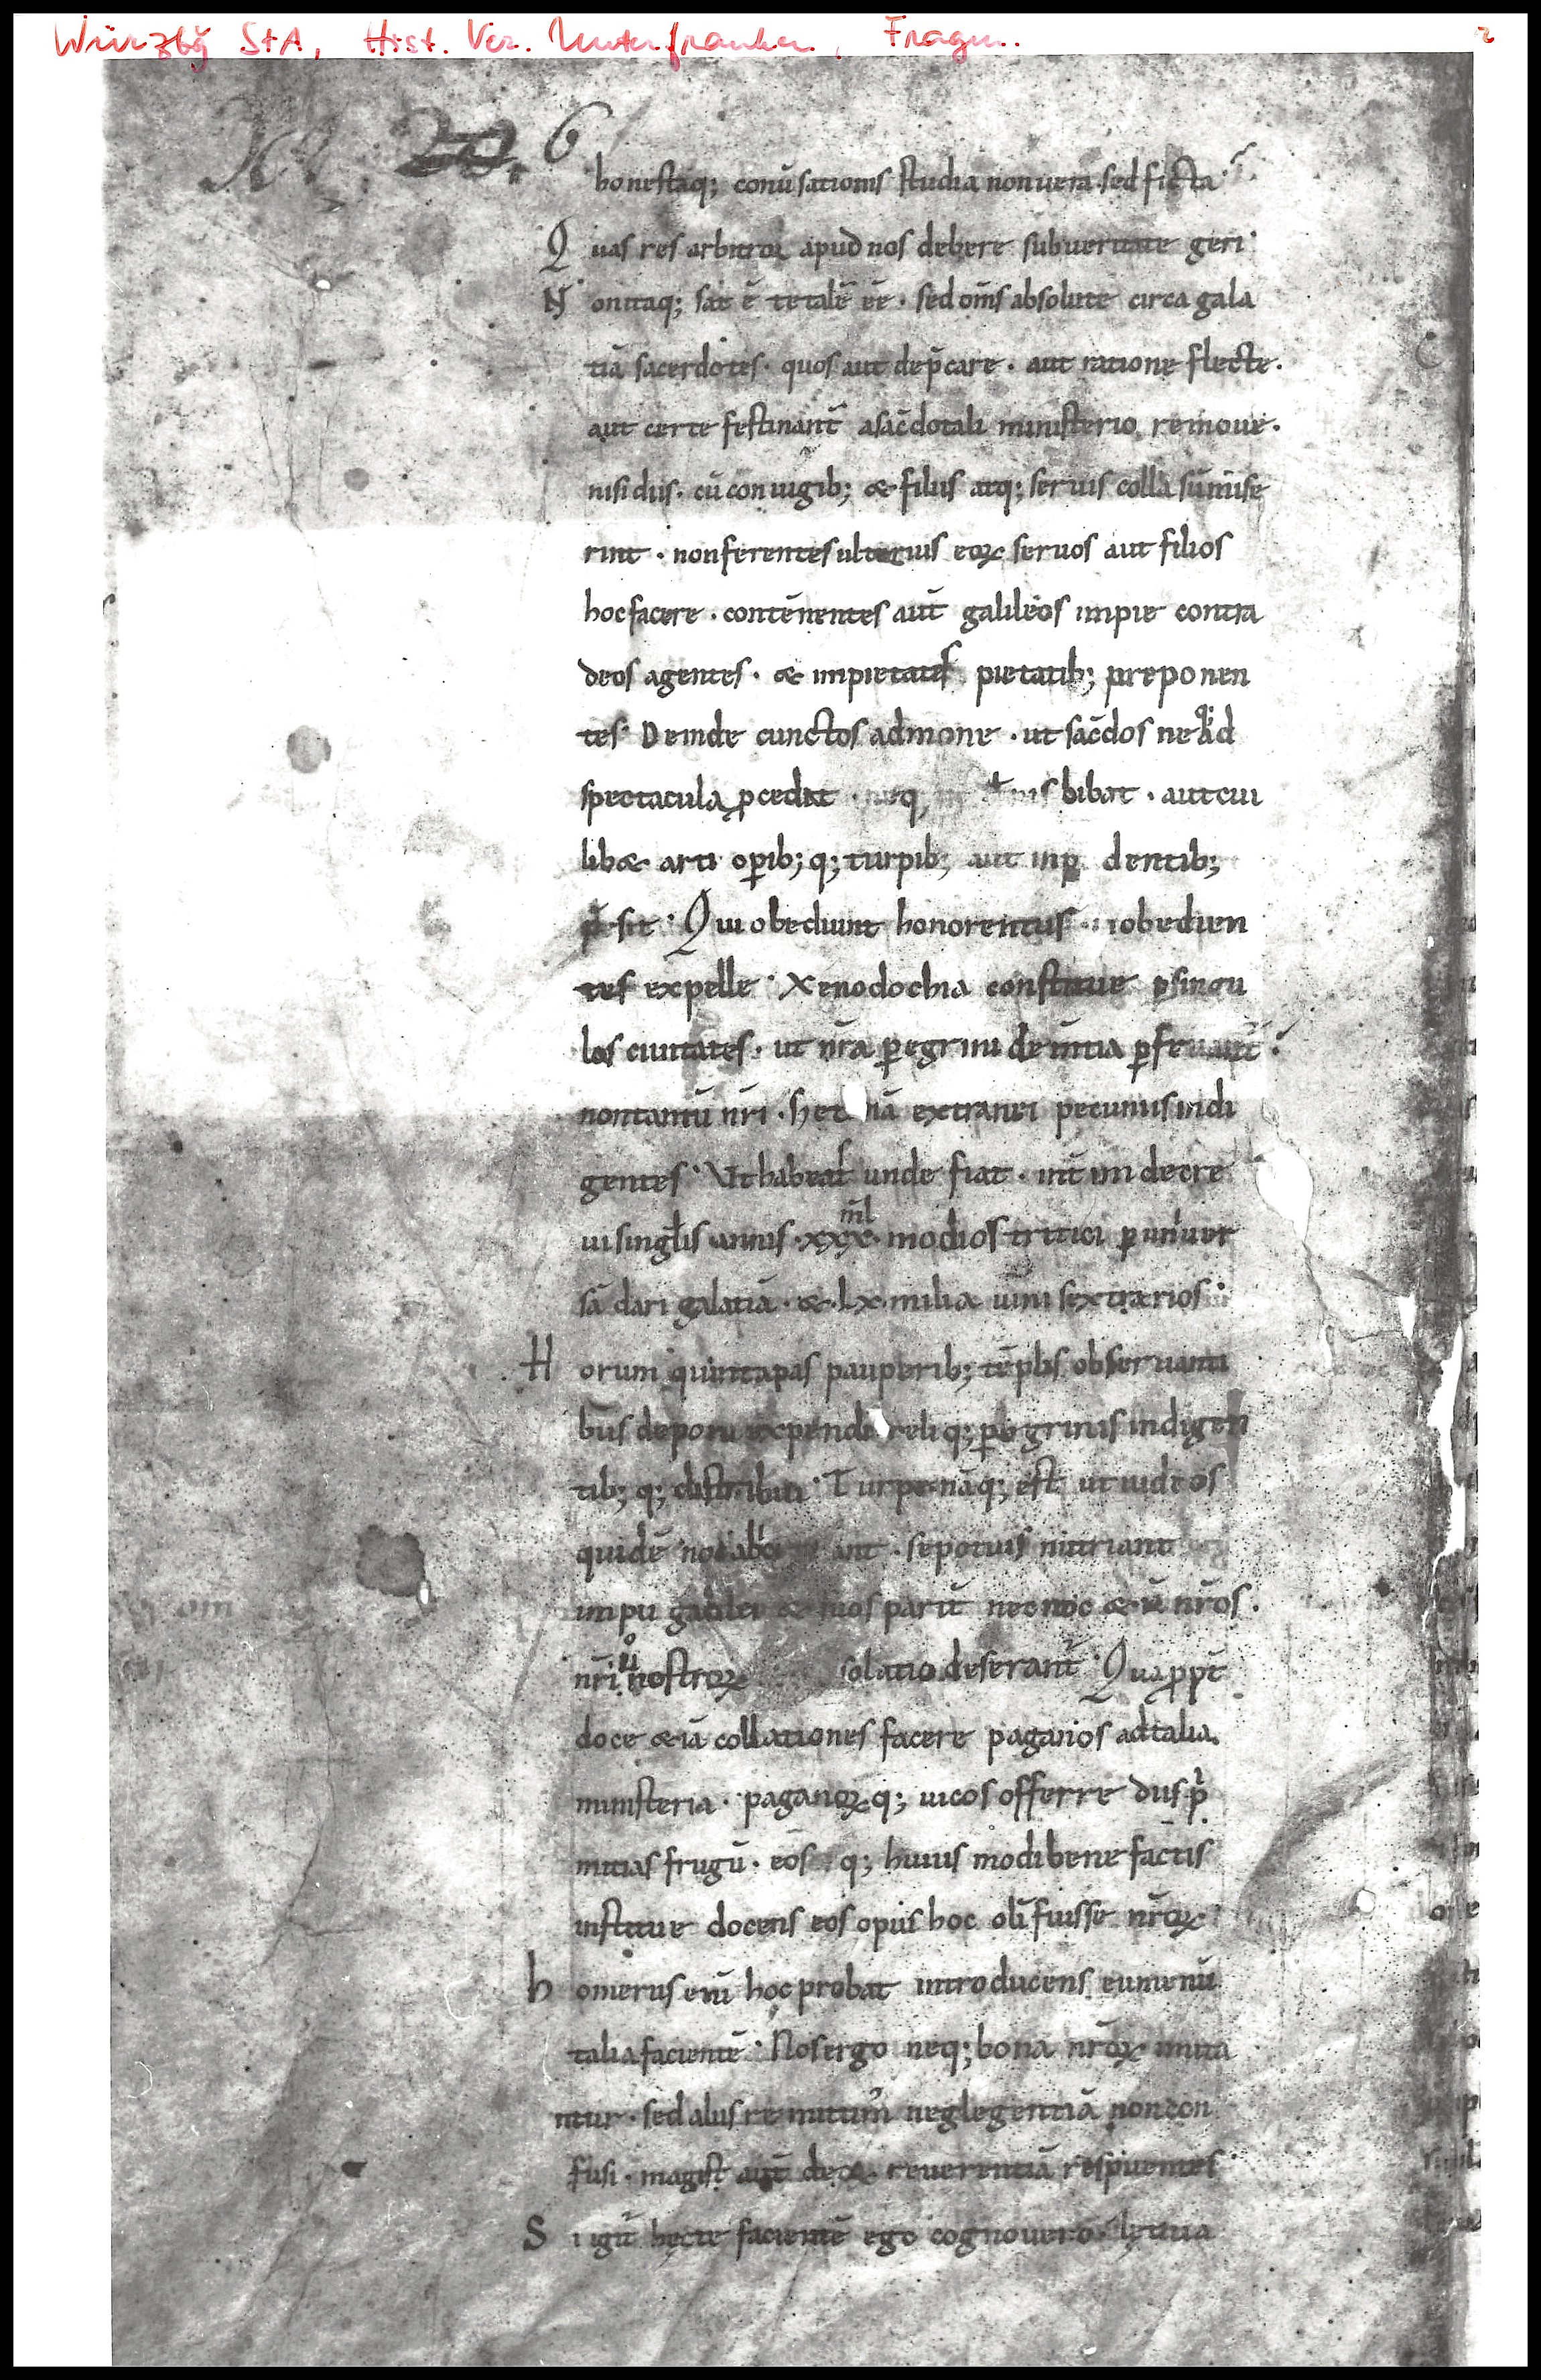 Würzbg StA, Hist. Ver. Unterfranken, Fragm. 2
6
honestaq; conūsationis studia non uera sed ficta
Quas res arbitror apud nos debere sub ueritate geri
Non itaq; sat ē te talē ēē · sed om̄s absolute circa gala
tiā sacerdotes · quos aut dep̄care · aut ratione flecte ·
aut certe festinant̄ a sac̄dotali ministerio remoue ·
nisi diis · cū coniugib; & filiis atq; seruis colla sūmise
rint · non ferentes ulterius eoꝝ seruos aut filios
hoc facere · contēnentes aut̄ galileos impie contra
deos agentes · & impietates pietatib; preponen
tes · Deinde cunctos admone · ut sac̄dos neq; ad
spectacula ꝓcedat · neq; bibat · aut cui
lib& arti oꝑib; q; turpib; aut inp dentib;
p̄sit · Qui obediunt honorentur · inobedien
tes expelle · Xenodochia constitue ꝑ singu
las ciuitates · ut nr̄a ꝑegrini clem̄tia ꝑfruant̄
non tantū nr̄i · s; & nā extranei pecuniis indi
gentes · Vt habeas unde fiat · int̄im decre
ui singulis annis · xxx · ml̄ modios tritici ꝑ uniuer
sā dari galatiā · & · lx · milia uini sextarios ·
Horum quintā pas pauperib; tēplis obseruanti
bus depon expendi reliq; ꝑegrinis indigen
tib; q; distribui · Turpe nāq; est ut iudeos
quidē ant · sepotuis nutriant
impii galilei & suos parit̄ nec noc & iā nr̄os ·
nr̄i u̇o nostroꝝ solatio deserant̄ · Qua ꝓpt̄
doce &iā collationes facere paganos ad talia
ministeria · paganoꝝ q; uicos offerre diis p̄
mitias frugū · eos q; huius modi bene factis
institue docens eos opus hoc olī fuisse nr̄oꝝ
homerus enī hoc probat introducens eumenū
talia facientē · Nos ergo neq; bona nr̄oꝝ imita
mur · sed aliis remittim̄ neglegentiā non con
fusi · magis aut̄ deoꝝ reuerentiā respuentes ·
Si igit̄ hęc te facientē ego cognouero · lętitia